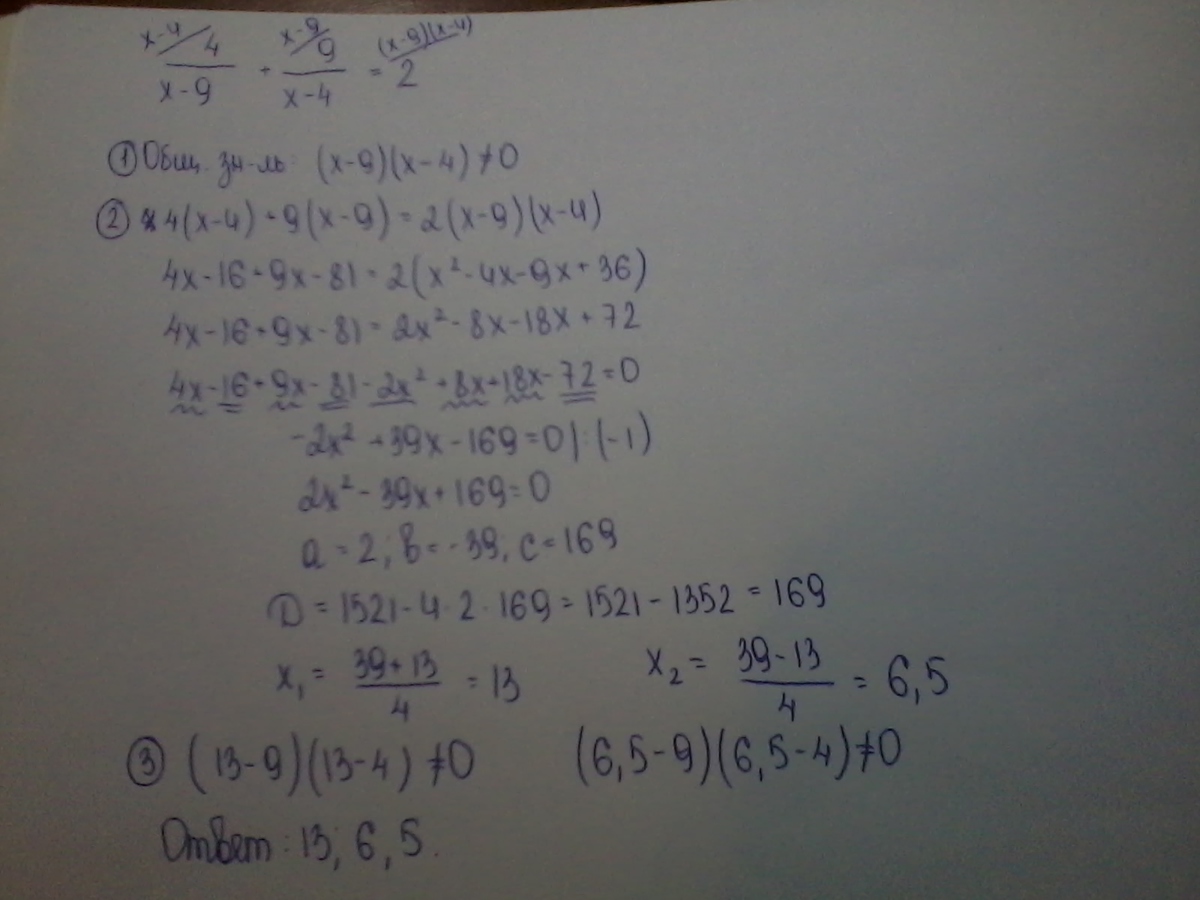 x-4/ 4/(x-9) + x-9/ 9/(x-4) = (x-9)(x-4)/ 2
① Общ. зн-ль: (x-9)(x-4)≠0
② 4(x-4)+9(x-9)=2(x-9)(x-4)
4x-16+9x-81=2(x²-4x-9x+36)
4x-16+9x-81=2x²-8x-18x+72
4x-16+9x-81-2x²+8x+18x-72=0
-2x²+39x-169=0|:(-1)
2x²-39x+169=0
a=2; b=-39; c=169
D=1521-4·2·169=1521-1352=169
x₁=(39+13)/4=13 x₂=(39-13)/4=6,5
③ (13-9)(13-4)≠0 (6,5-9)(6,5-4)≠0
Ответ: 13; 6,5.